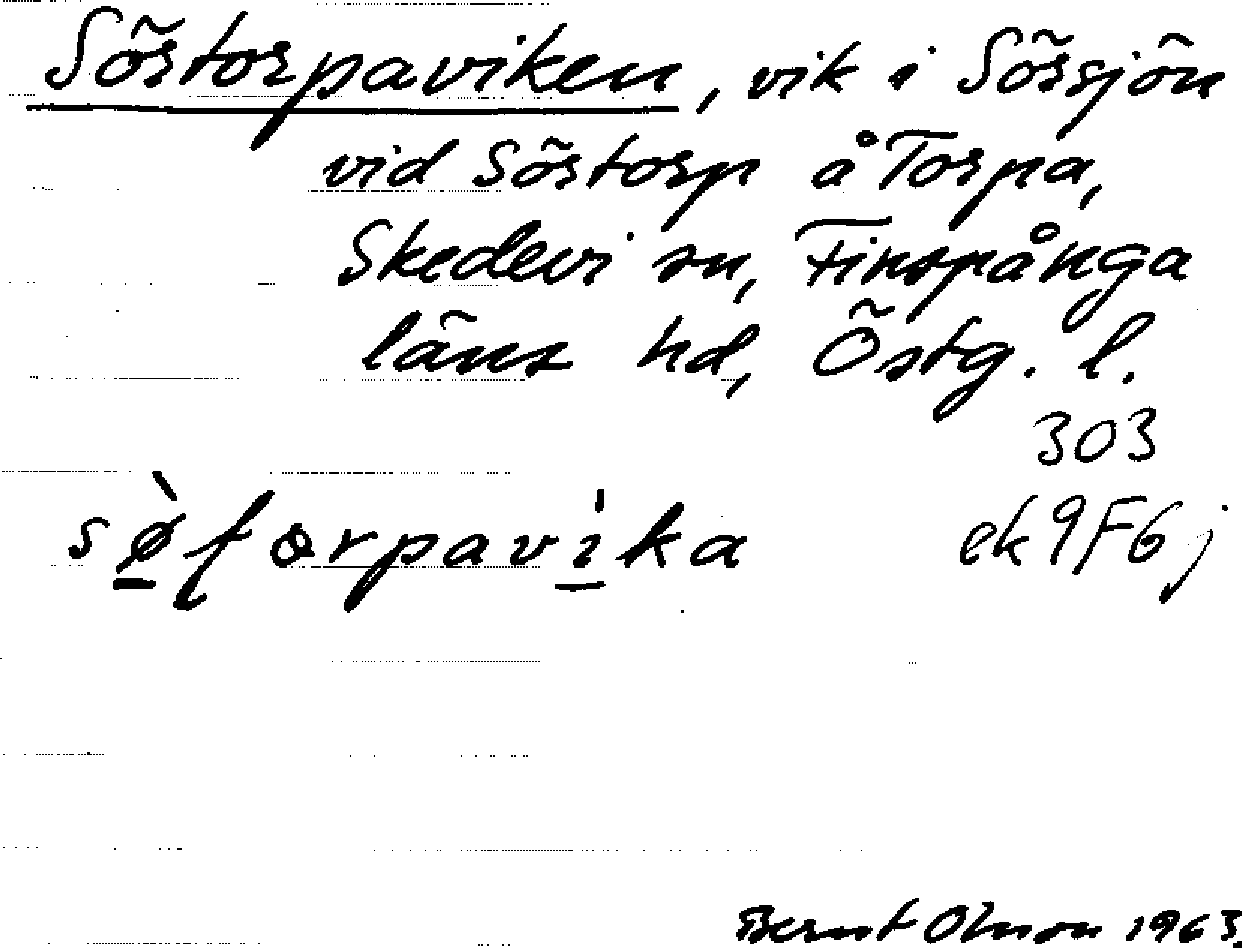 Sörstorpaviken, vik i Sörsjön
vid Sörstorp å Torpa,
Skedevi sn, Finspånga
läns hd, Östg. l.
303
ek 9F6j
Bernt Olsson 1963